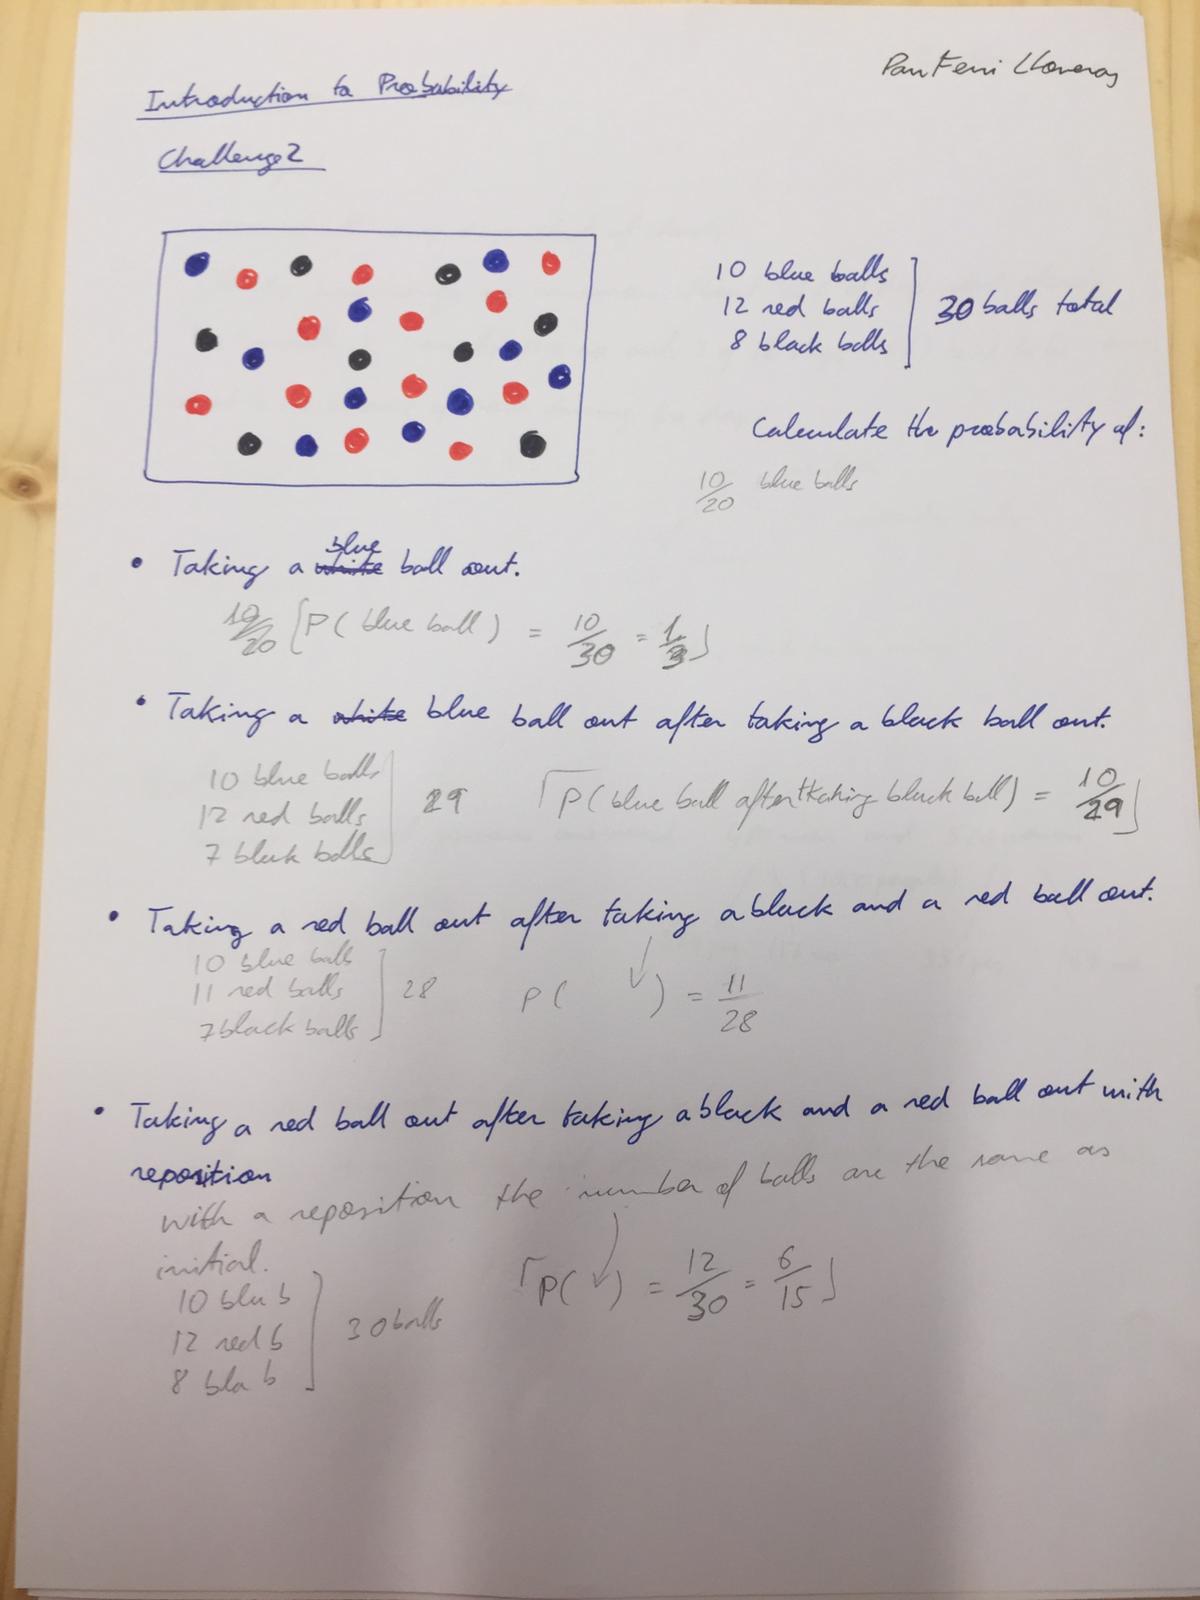 Introduction to Probability
Challenge 2
10 blue balls
12 red balls
8 black balls
30 balls total
Calculate the probability of:
10/20 blue balls
• Taking a white blue ball out.
10/20 P( blue ball ) = 10/30 = 1/3
• Taking a white blue ball out after taking a black ball out.
10 blue balls
12 red balls
7 black balls
29
P( blue ball after taking black ball) = 10/29
• Taking a red ball out after taking a black and a red ball out.
10 blue balls
11 red balls
7 black balls
28
P( ) = 11/28
• Taking a red ball out after taking a black and a red ball out with
reposition
with a reposition the number of balls are the same as
initial.
10 blu b
12 red b
8 bla b
30 balls
P( ) = 12/30 = 6/15